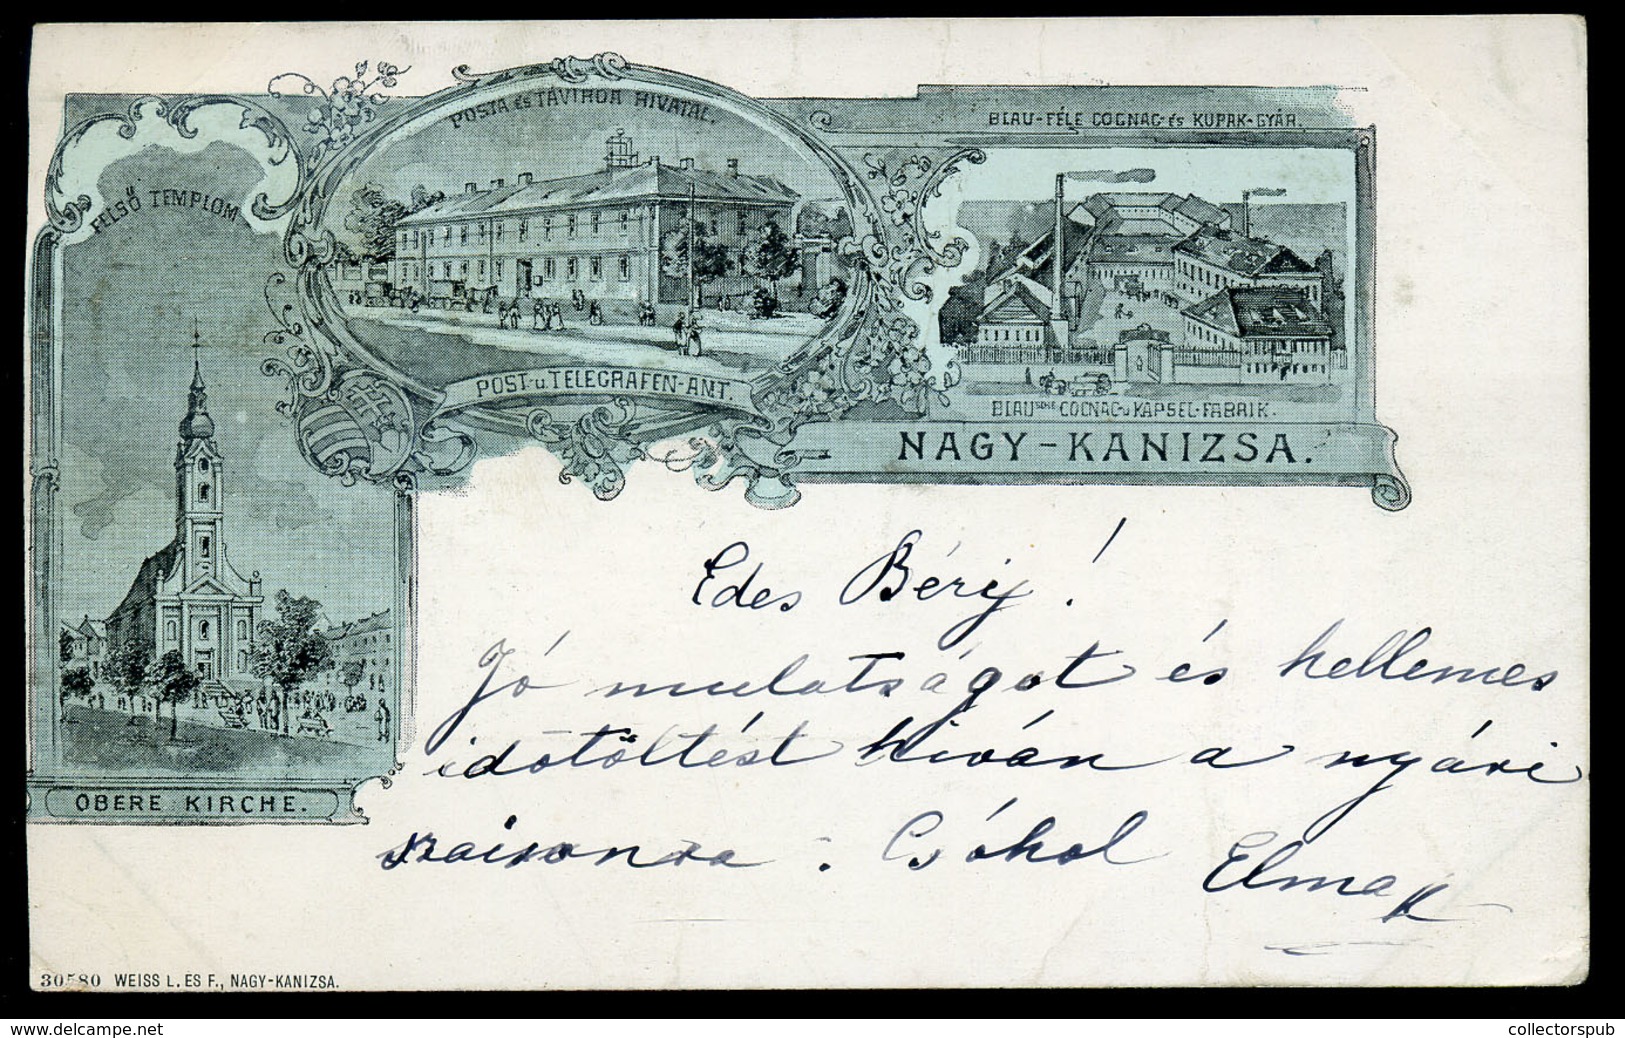 POSTA és TÁVIRDA HIVATAL.
BLAU-FÉLE COGNAC-és KUPAK-GYÁR.
FELSŐ TEMPLOM
POST-u. TELEGRAFEN-AMT.
BLAUSCHE COGNAC-u KAPSEL-FABRIK.
NAGY-KANIZSA.
Edes Bériy!
Jó mulatságot és hellemes
időtöltést kiván a nyári
szaisonra. Csókol
Elma
OBERE KIRCHE.
30580 WEISS L. ES F., NAGY-KANIZSA.
www.delcampe.net
collectorspub